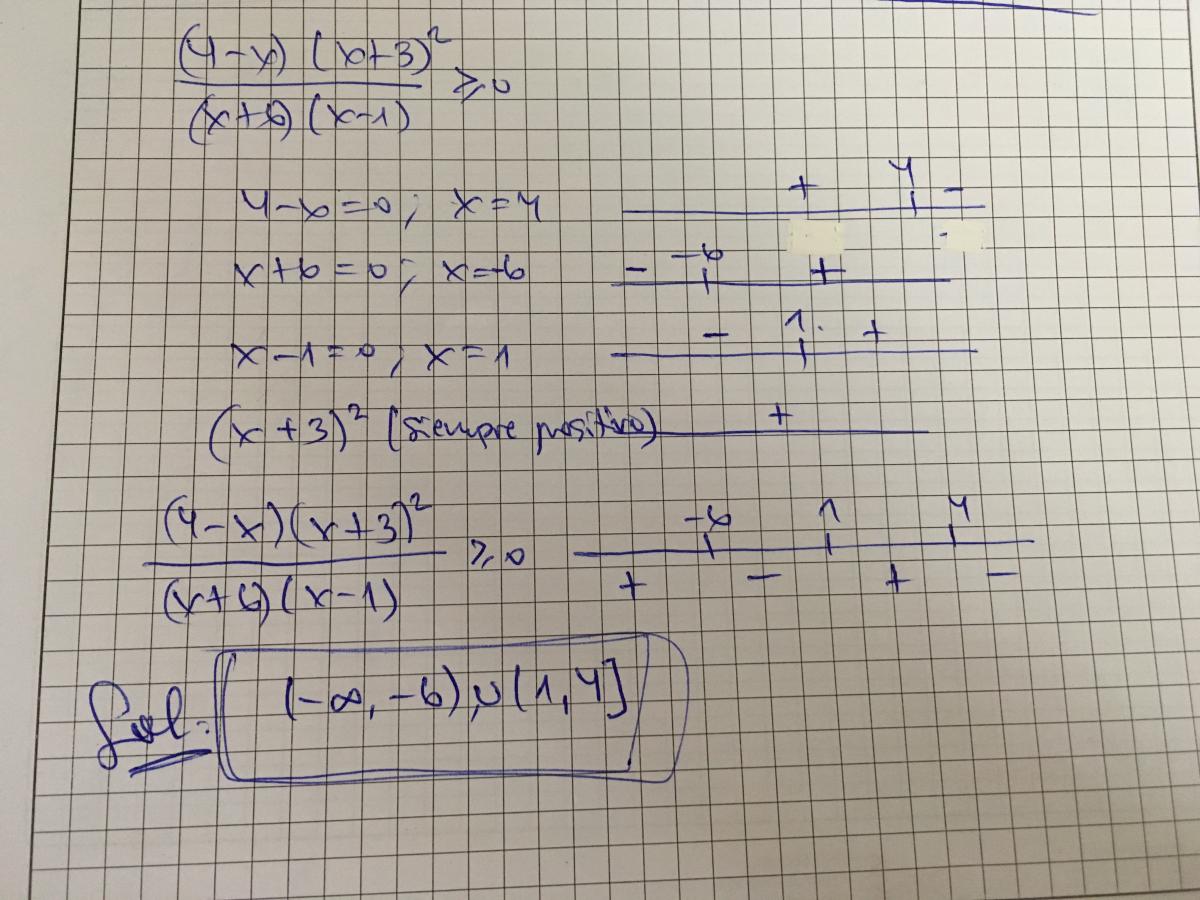 (4-x) (x+3)²
≥0
(x+6) (x-1)
4-x=0; x=4 + 4 -
x+6=0; x=-6 - -6 +
x-1=0; x=1 - 1 +
(x+3)² (siempre positivo) +
(4-x)(x+3)² -6 1 4
≥0
(x+6)(x-1) + - + -
Sol: (-∞, -6) ∪ (1, 4]